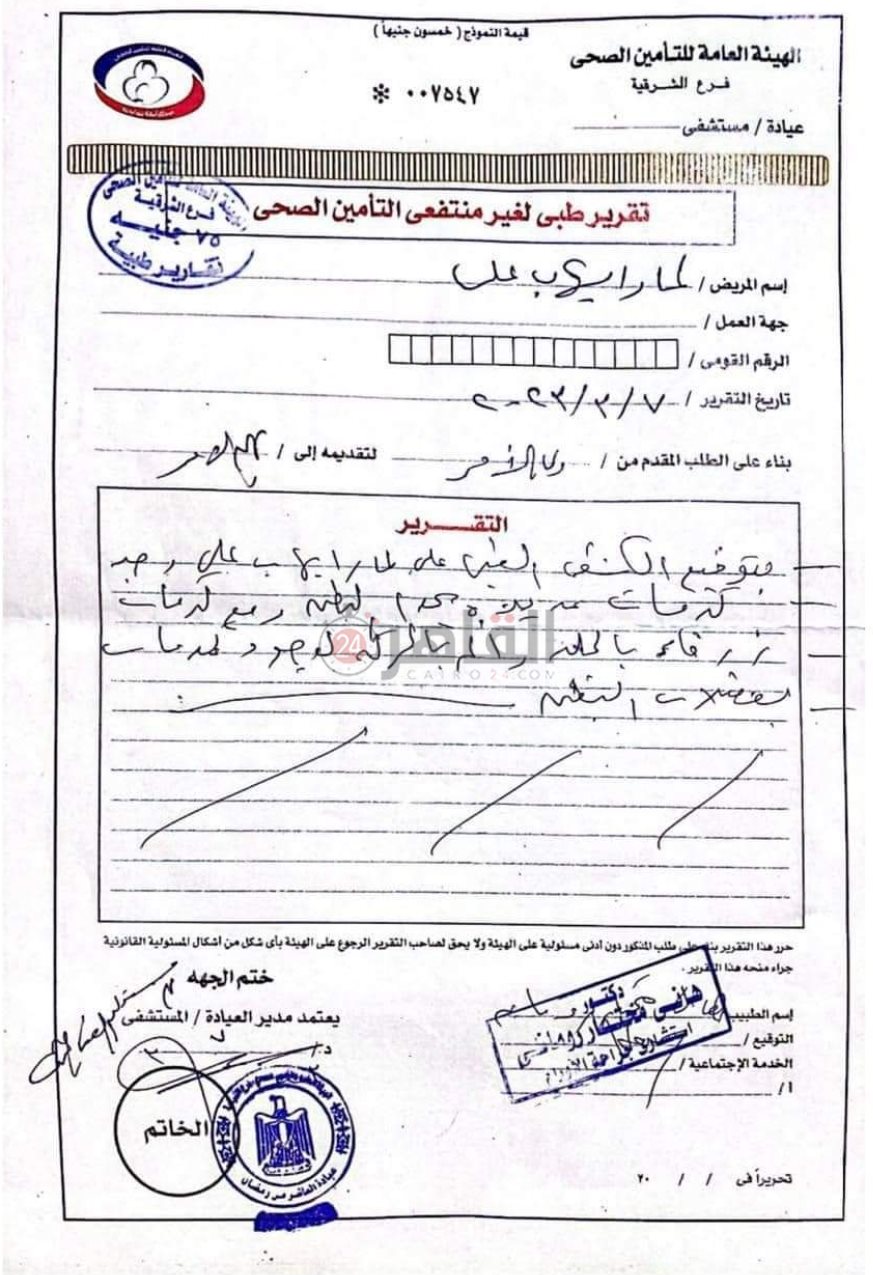 قيمة النموذج ( خمسون جنيهاً )
الهيئة العامة للتأمين الصحى
فرع الشرقية
٠٠٧٥٤٧ *
عيادة / مستشفى
تقرير طبى لغير منتفعى التأمين الصحى
فرع الشرقية
٧٥ جنيه
تقارير طبية
إسم المريض / لمار ايهاب على
جهة العمل /
الرقم القومى /
تاريخ التقرير / ٧ / ٣ / ٢٠٢٣
بناء على الطلب المقدم من / ولى الأمر لتقديمه إلى /
التقـــرير
بتوقيع الكشف الطبى على لمار ايهاب علي وجد
كدمات عديدة البطن كدمات
زرقاء بالجلد والم بالحركة لوجود كدمات
بعضلات البطن
القاهرة 24
CAIRO24.COM
حرر هذا التقرير بناء على طلب المذكور دون أدنى مسئولية على الهيئة ولا يحق لصاحب التقرير الرجوع على الهيئة بأى شكل من أشكال المسئولية القانونية
جراء منحه هذا التقرير .
ختم الجهه
إسم الطبيب
دكتور
هانى مختار
استشارى جراحة الأورام
يعتمد مدير العيادة / المستشفى
التوقيع /
د/
الخدمة الإجتماعية /
أ /
الخاتم
عيادة العاشر من رمضان
تحريراً فى / / ٢٠